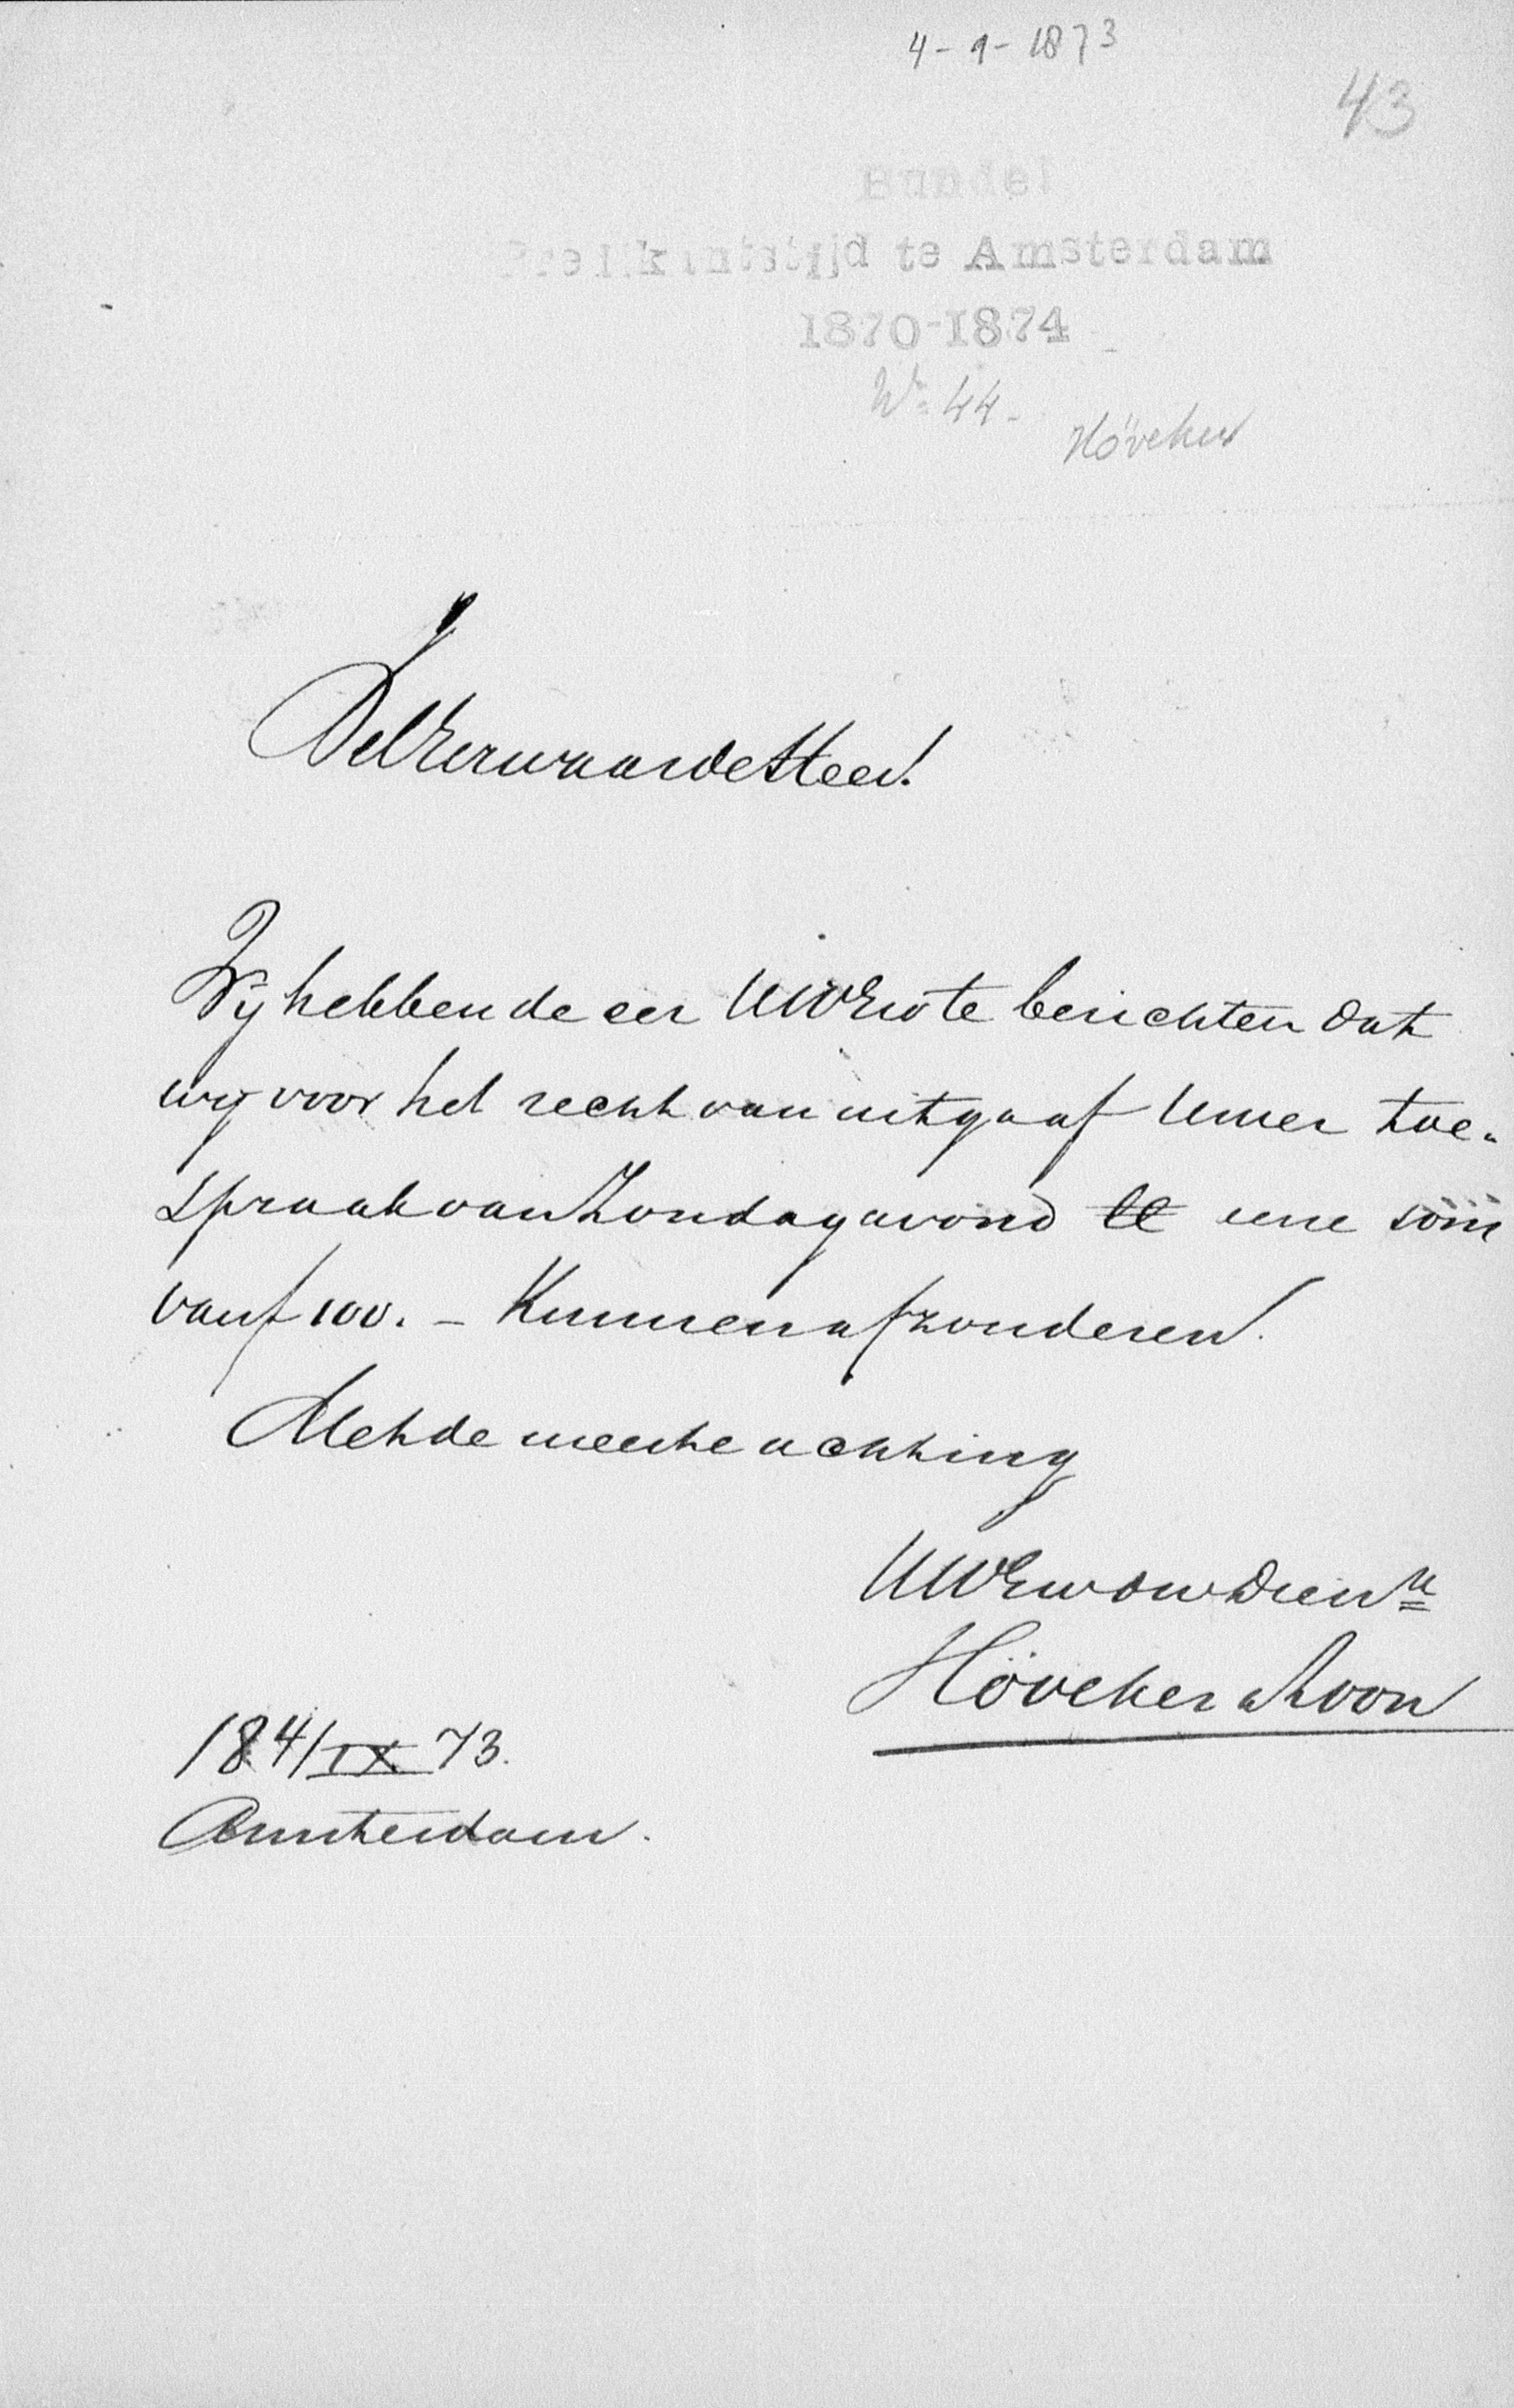 4-9-1873
43
Bundel
Predikantstijd te Amsterdam
1870-1874
No. 44-
Höveker
WelEerwaarde Heer!
Wij hebben de eer UWEw te berichten dat
wij voor het recht van uitgaaf Uwer toe-
spraak van Zondagavond eene som
van f 100.- Kunnen afzonderen.
Met de meeste achting
UWEw dw Dien
Höveker & Zoon
18 4/IX 73.
Amsterdam.